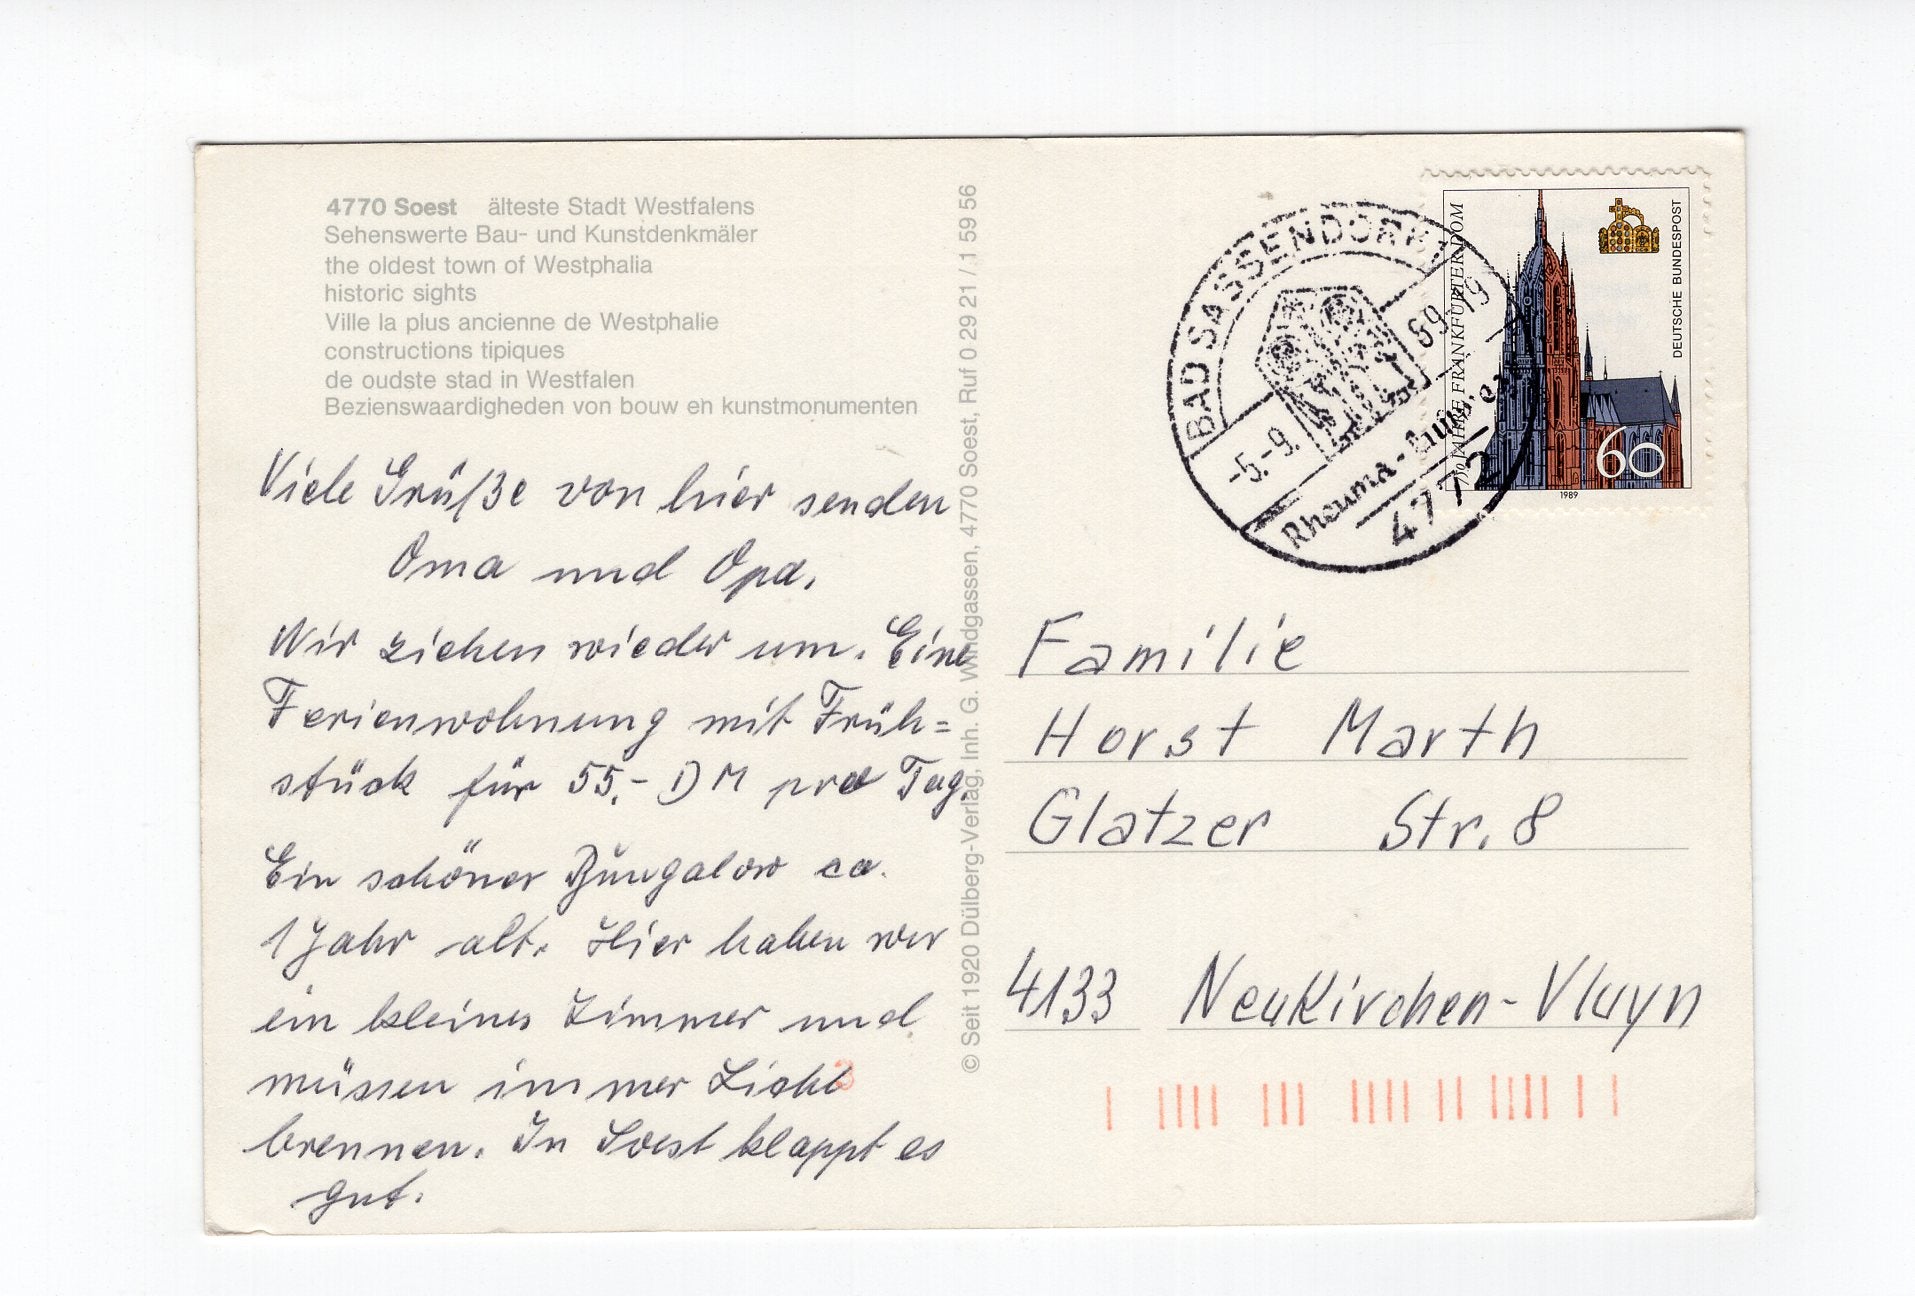 4770 Soest älteste Stadt Westfalens
Sehenswerte Bau- und Kunstdenkmäler
the oldest town of Westphalia
historic sights
Ville la plus ancienne de Westphalie
constructions tipiques
de oudste stad in Westfalen
Bezienswaardigheden von bouw eh kunstmonumenten
Viele Grüße von hier senden
Oma und Opa.
Wir ziehen wieder um. Eine
Ferienwohnung mit Früh=
stück für 55,- DM pro Tag.
Ein schöner Bungalow ca.
1 Jahr alt. Hier haben wir
ein kleines Zimmer und
müssen immer Licht
brennen. In Soest klappt es
gut.
3
© Seit 1920 Dülberg-Verlag, Inh. G. Windgassen, 4770 Soest, Ruf 0 29 21 / 1 59 56
BAD SASSENDORF
-5.-9. 89-19
Rheuma-
4772
JAHRE FRANKFURTER DOM
DEUTSCHE BUNDESPOST
60
1989
Familie
Horst Marth
Glatzer Str. 8
4133 Neukirchen-Vluyn